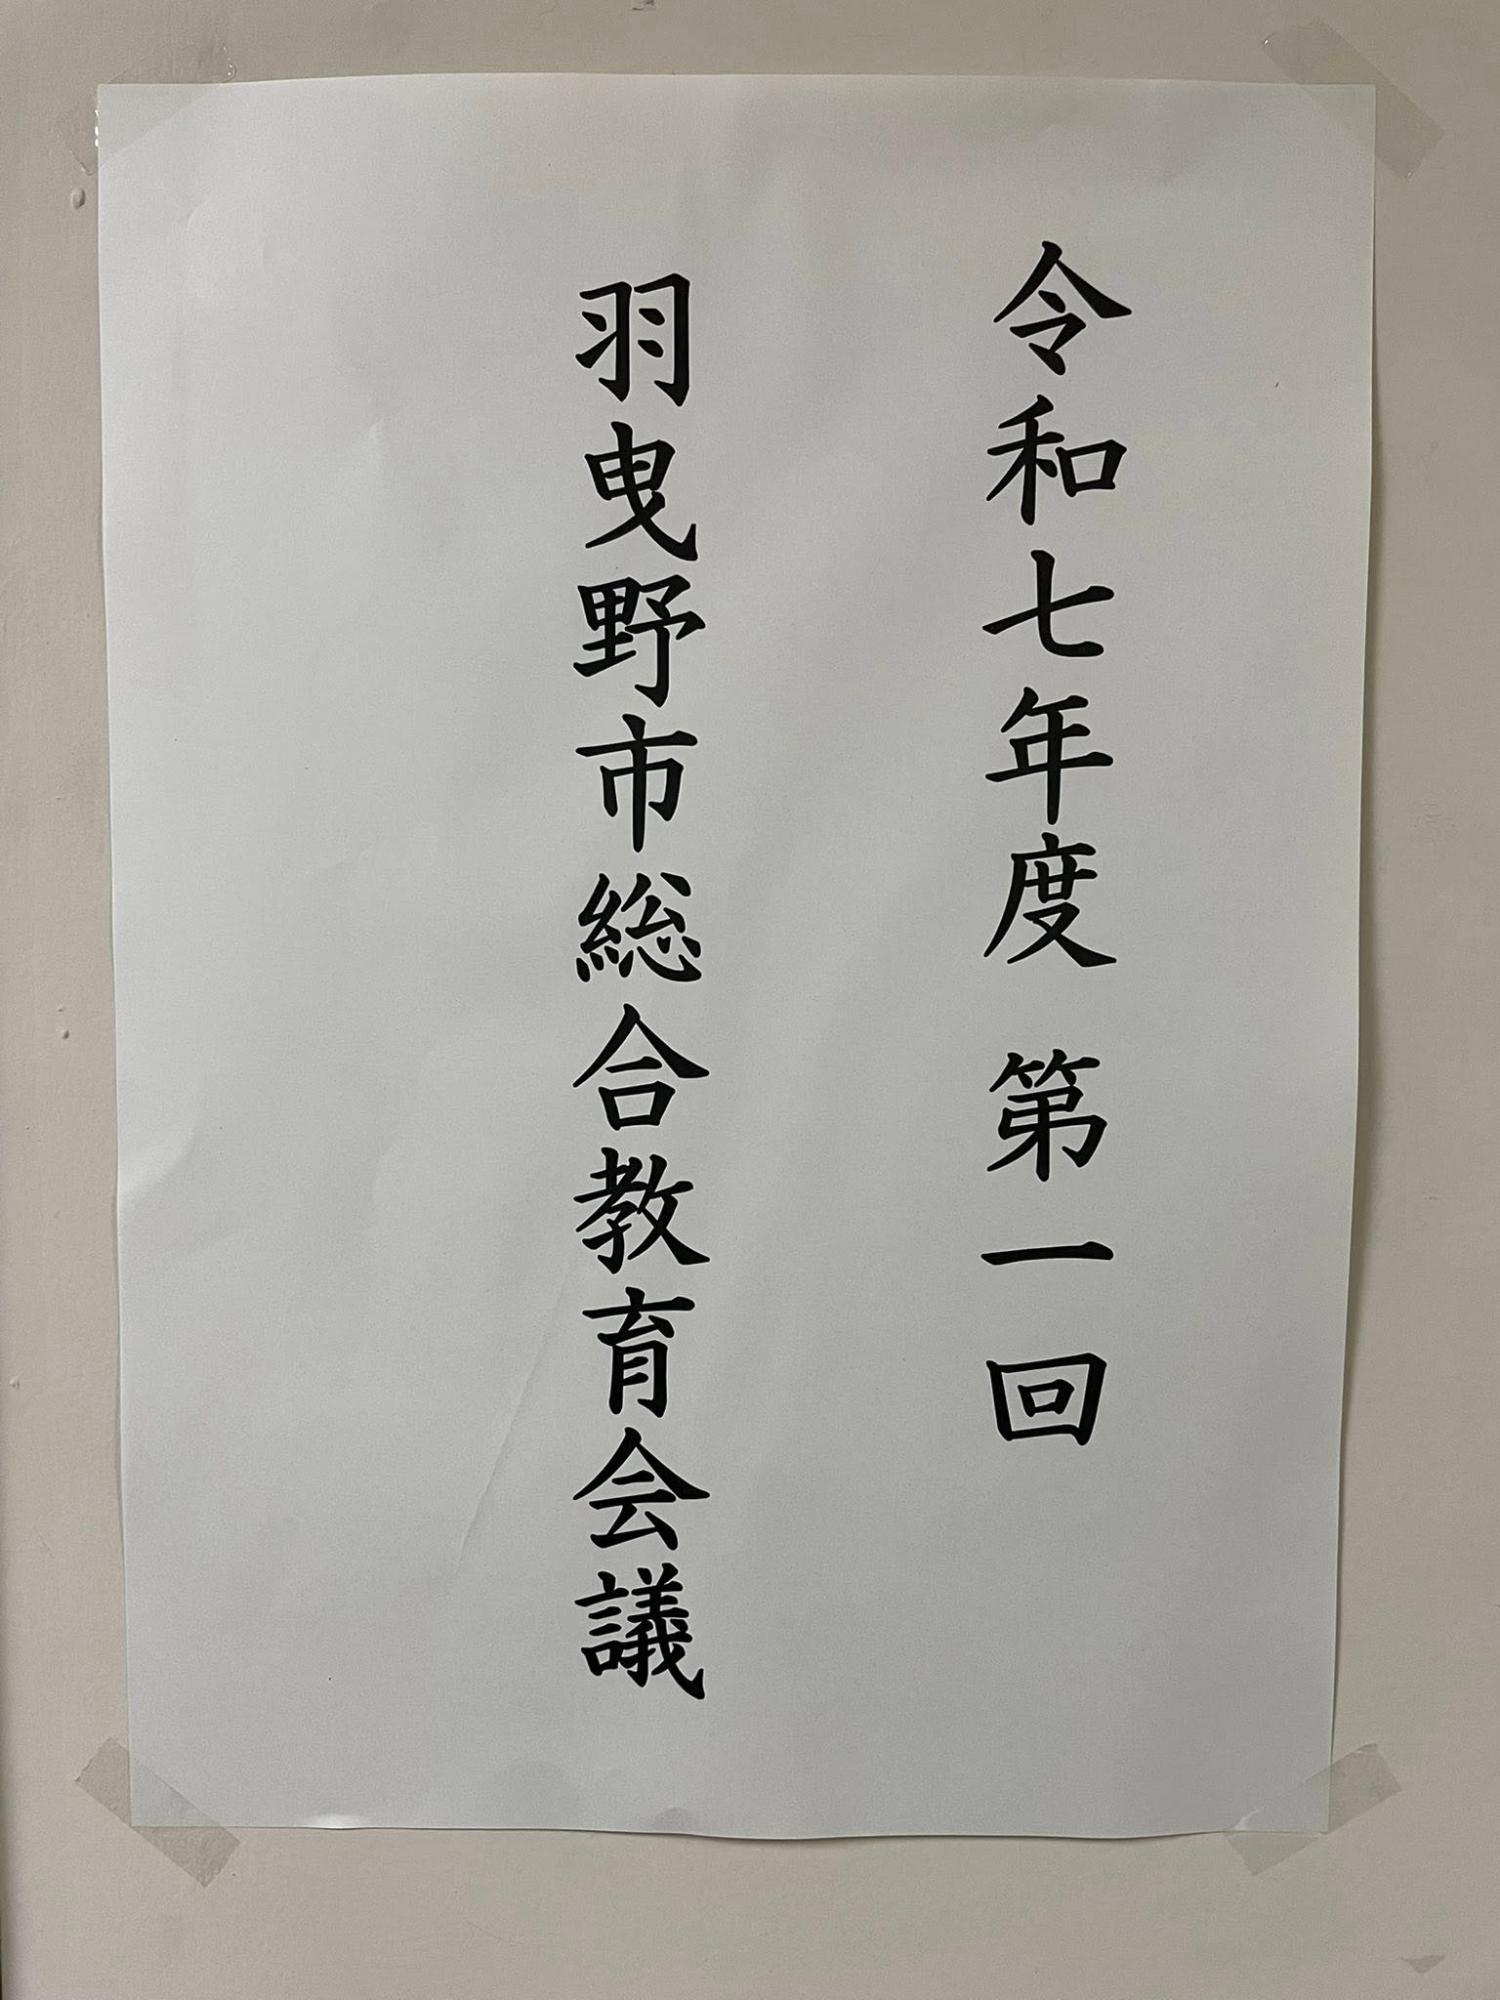 令和七年度 第一回
羽曳野市総合教育会議